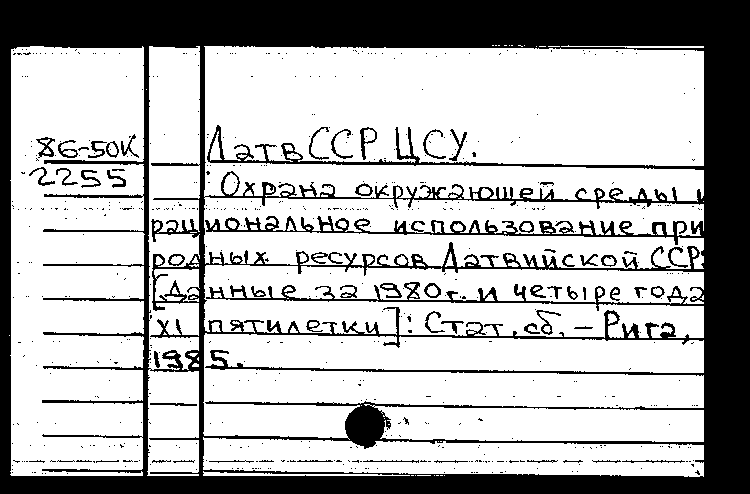 86-50К
2255
ЛатвССР. ЦСУ.
Охрана окружающей среды и
рациональное использование при
родных ресурсов Латвийской ССР:
[Данные за 1980г. и четыре года
XI пятилетки]: Стат. сб. – Рига,
1985.